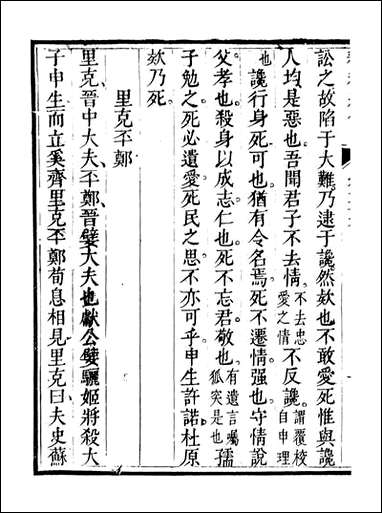 訟之故陷于大難乃逮于讒然欸也不敢愛死惟與讒
人均是惡也吾聞君子不去情不去忠愛之情不反讒謂覆校自申理
也讒行身死可也猶有令名焉死不遷情强也守情說
父孝也殺身以成志仁也死不忘君敬也有遺言囑狐突是也孺
子勉之死必遺愛死民之思不亦可乎申生許諾杜原
欸乃死
里克㔻鄭
里克晉中大夫㔻鄭晉嬖大夫也獻公嬖驪姬將殺大
子申生而立奚齊里克㔻鄭荀息相見里克曰夫史蘇